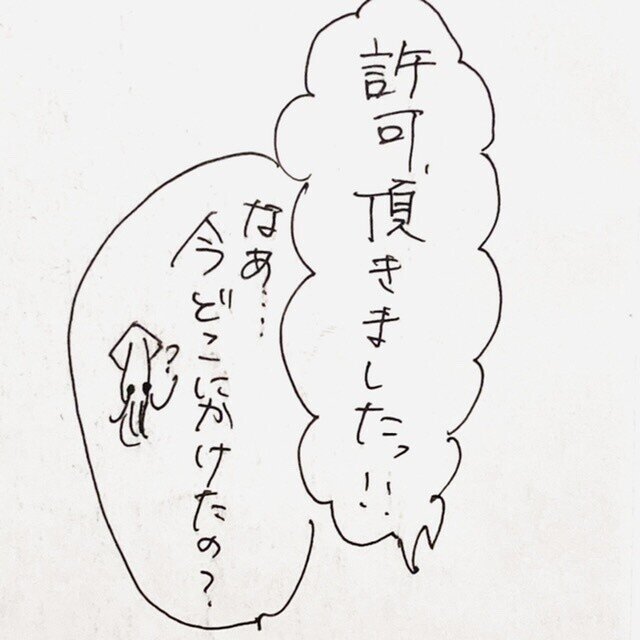 許可、頂きましたっ!!
なぁ…
今どこにかけたの?
?